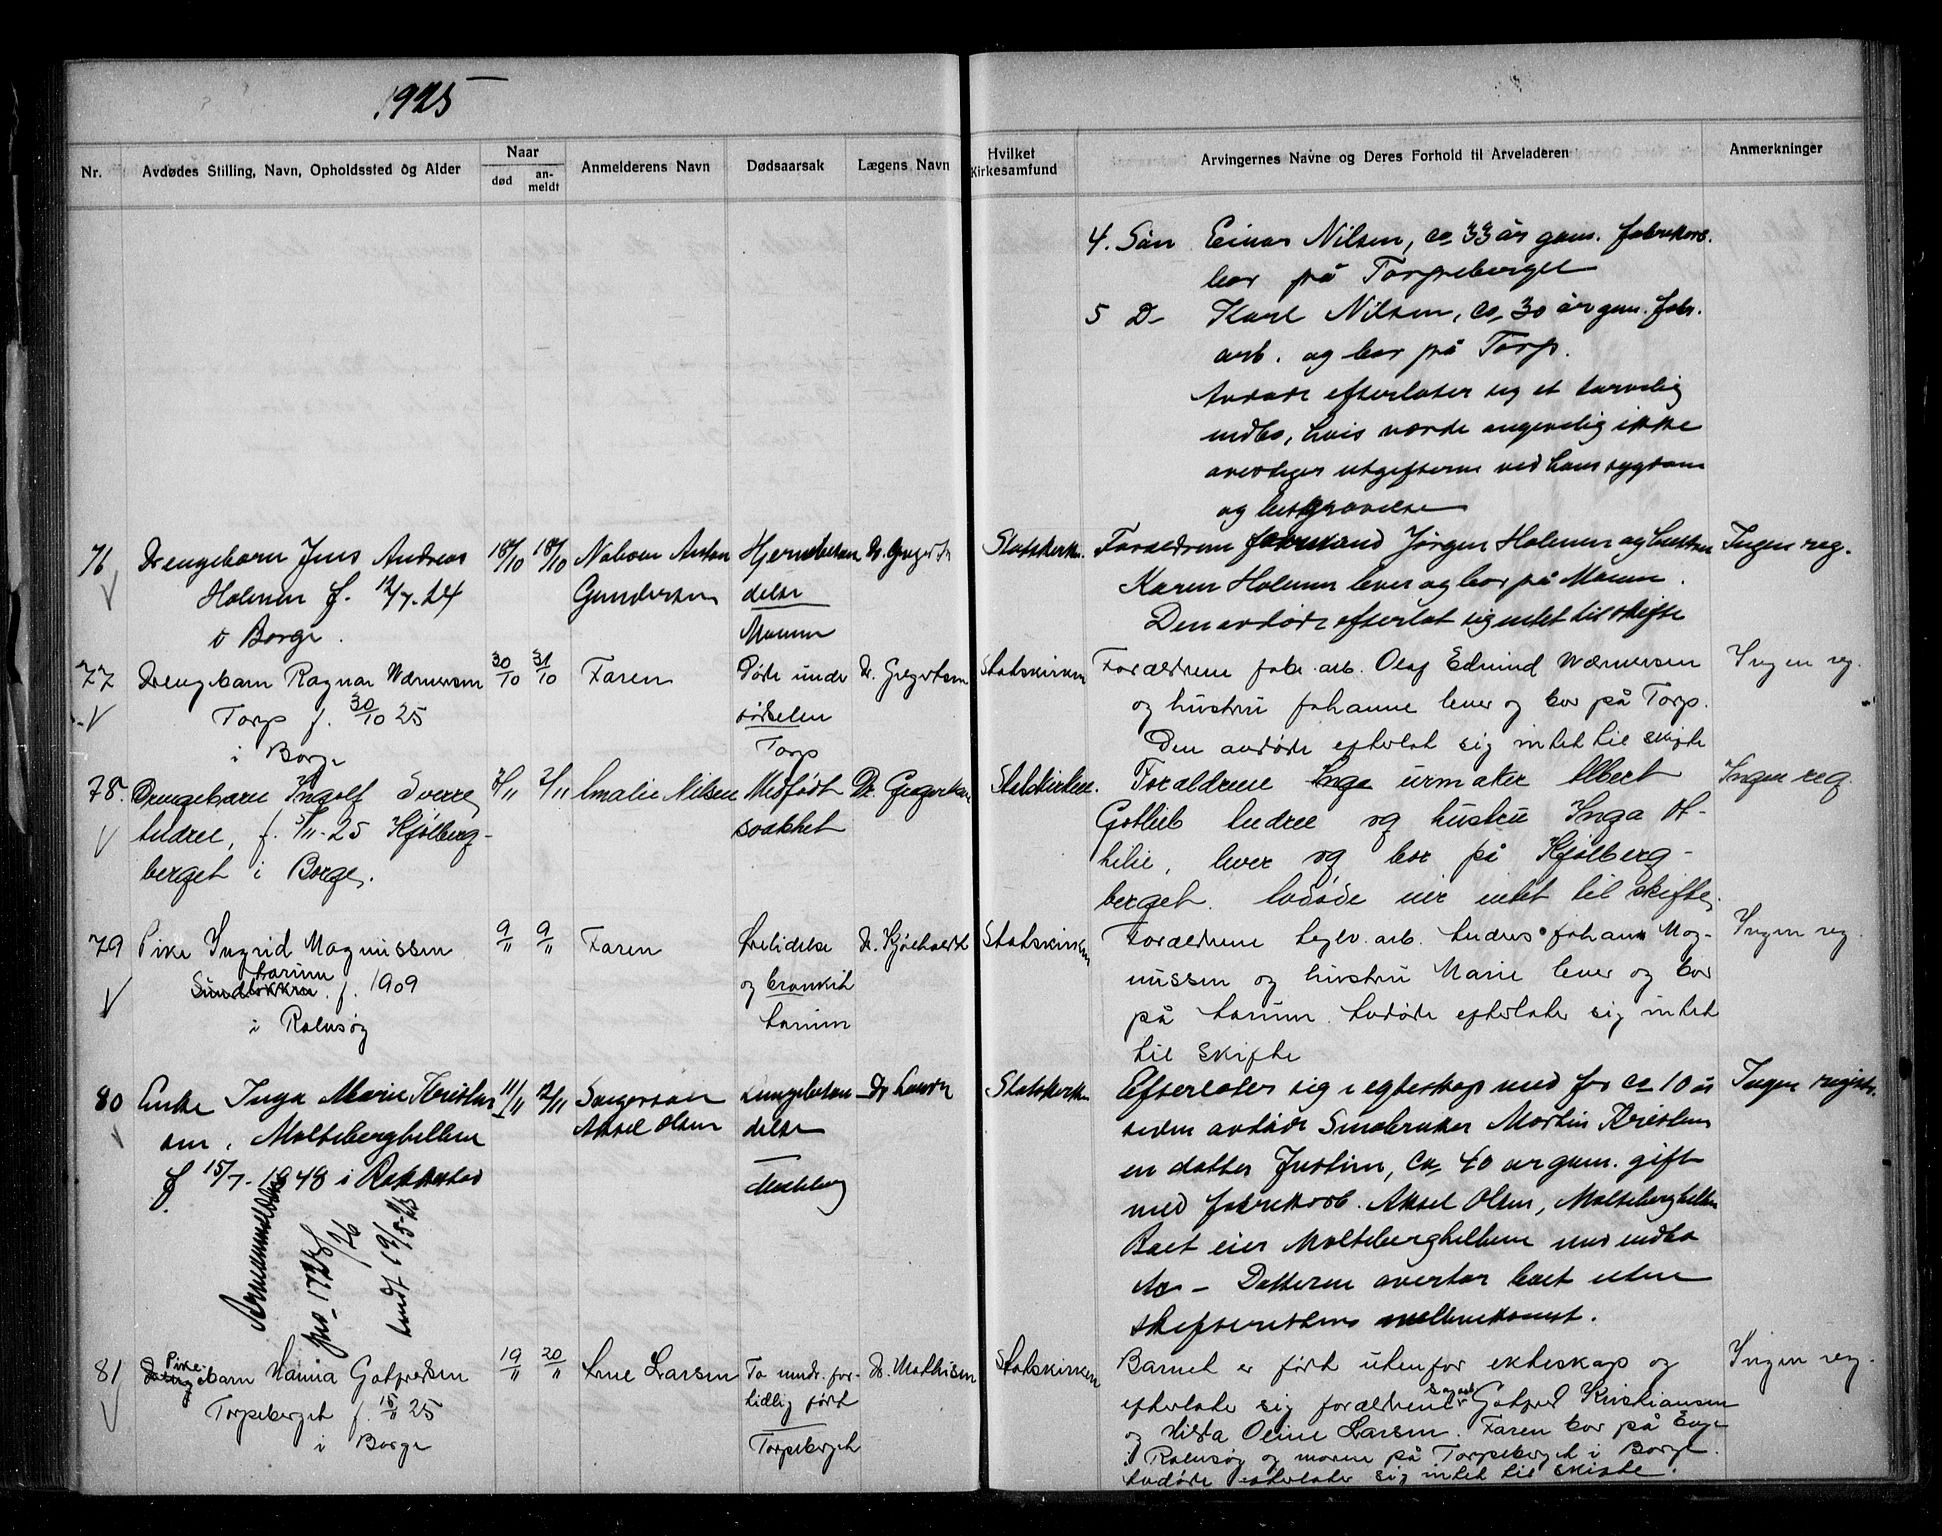 1925
Nr.
Avdødes Stilling, Navn, Opholdssted og Alder
Naar
død
an-
meldt
Anmelderens Navn
Dødsaarsak
Lægens Navn
Hvilket
Kirkesamfund
Arvingernes Navne og Deres Forhold til Arveladeren
Anmerkninger
4. Søn Einar Nilsen, ca 33 år gam. fabrikarb.
bor på Torpeberget
5 D- Karl Nilsen, ca 30 år gam. fabr.
arb. og bor på Torp.
Avdøde efterlater sig et tarvelig
indbo, hvis værde angivelig ikke
overstiger utgifterne ved hans sygdom
og begravelse
76
Drengebarn Jens Andreas
Holmen f. 12/7-24
i Borge.
18/10
18/10
Anton
Gundersen
Hjernebetæn
delse
Moum
Dr. Gregertsen
Statskirken
Forældrene Jørgen Holmen og hustru
Karen Holmen lever og bor på Moum.
Den avdøde efterlot sig intet til skifte
Ingen reg.
77
Drengebarn Ragnar Wærnersen
Torp f. 30/10 25
i Borge
30/10
31/10
Faren
Døde under
fødselen
Torp
Dr. Gregertsen
Statskirken
Forældrene fabr. arb. Olaf Edvind Wærnersen
og hustru Johanne lever og bor på Torp.
Den avdøde efterlot sig intet til skifte
Ingen reg.
78.
Drengebarn Ingolf Sverre
Andree, f. 5/11-25 Kjølberg-
berget i Borge.
7/11
7/11
Amalie Nilsen
Medfødt
svakhet
Dr. Gregertsen
Statskirken.
Forældrene Inga urmaker Albert
Gotlieb Andree og hustru Inga Ot-
hilie, lever og bor på Kjølberg-
berget. Avdøde eier intet til skifte.
Ingen reg.
79
Pike Ingrid Magnussen
Larum
f. 1909
i Rolvsøy
9/11
9/11
Faren
og bronkit
Larum
Dr. Kjølholdt
Statskirken
Forældrene teglv. arb. Anders Johan Mag-
nussen og hustru Marie lever og bor
på Larum. Avdøde efterlater sig intet
til skifte
Ingen reg.
80
Enke Inga Marie Kristian
sen, Molteberghellene
f 15/7-1848 i Rakkestad
11/11
12/11
Svigersøn
Aksel Olsen
Lungebetæn
delse
Dr. Lande
Statskirken
Efterlater sig i egteskap med for ca 10 år
siden avdøde Småbruker Martin Kristians
en datter Justine, ca 40 år gam. gift
med fabrikarb. Aksel Olsen, Molteberghellen
Boet eier Molteberghellene med indbo
m - Datteren overtar boet uten
skifterettens mellemkomst.
Ingen registr.
81
Pike-
barn Hanna Gotfredsen
Torpeberget f. 15/11 25
i Borge
19/11
20/11
Arne Larsen
To mndr. for-
tidlig født
Torpeberget
Dr. Mathisen
Statskirken
Barnet er født utenfor ekteskap og
efterlater sig forældrene Gotfred Kristiansen
og Hilda Oline Larsen. Faren bor på
i Rolvsøy og moren på Torpeberget i Borge.
Avdøde efterlater sig intet til skifte.
Ingen reg.